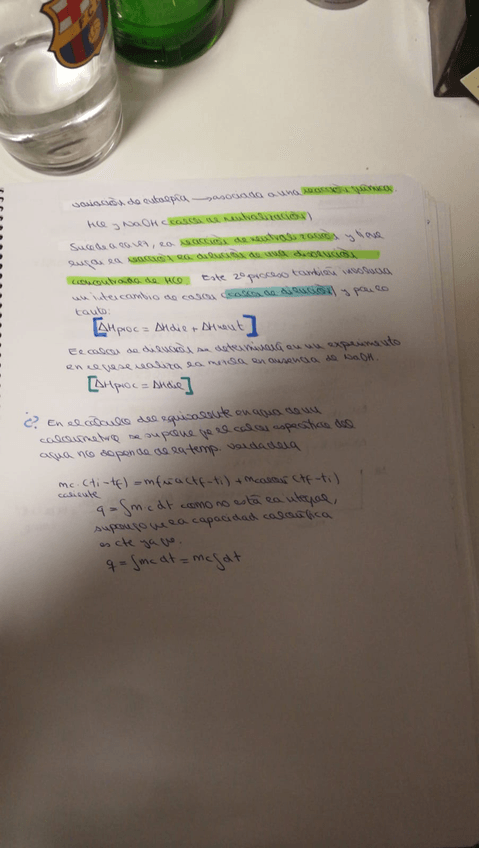 variación de entalpía → asociada a una reacción química
HCl y NaOH (calor de neutralización)
Sucede a la vez, la reacción de neutralización y la que
surge la reacción la dilución de una disolución
concentrada de HCl. Este 2º proceso también involucra
un intercambio de calor (calor de dilución) y por lo
tanto:
[ΔHproc = ΔHdil + ΔHneut]
El calor de dilución se determinará en un experimento
en el que se realiza la mezcla en ausencia de NaOH.
[ΔHproc = ΔHdil]
¿? En el cálculo del equivalente en agua de un
calorímetro se supone que el calor específico del
agua no depende de la temp. verdadera
mc · (ti - tf) = mfría (tf - ti) + mcalorí (tf - ti)
caliente
q = ∫mc dt como no está la integral,
supongo que la capacidad calorífica
es cte ya que.
q = ∫mc dt = mc∫dt